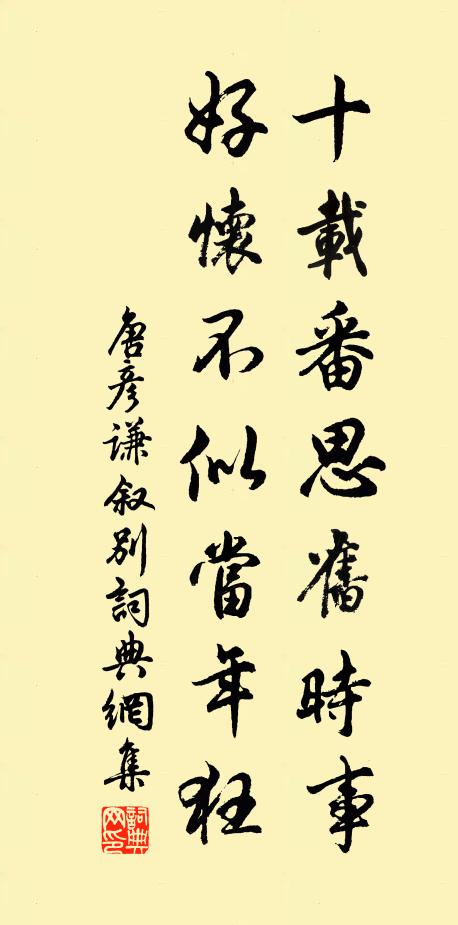 十載番思舊時事
好懷不似當年狂
唐彥謙叙別詞典網集
詞典網印